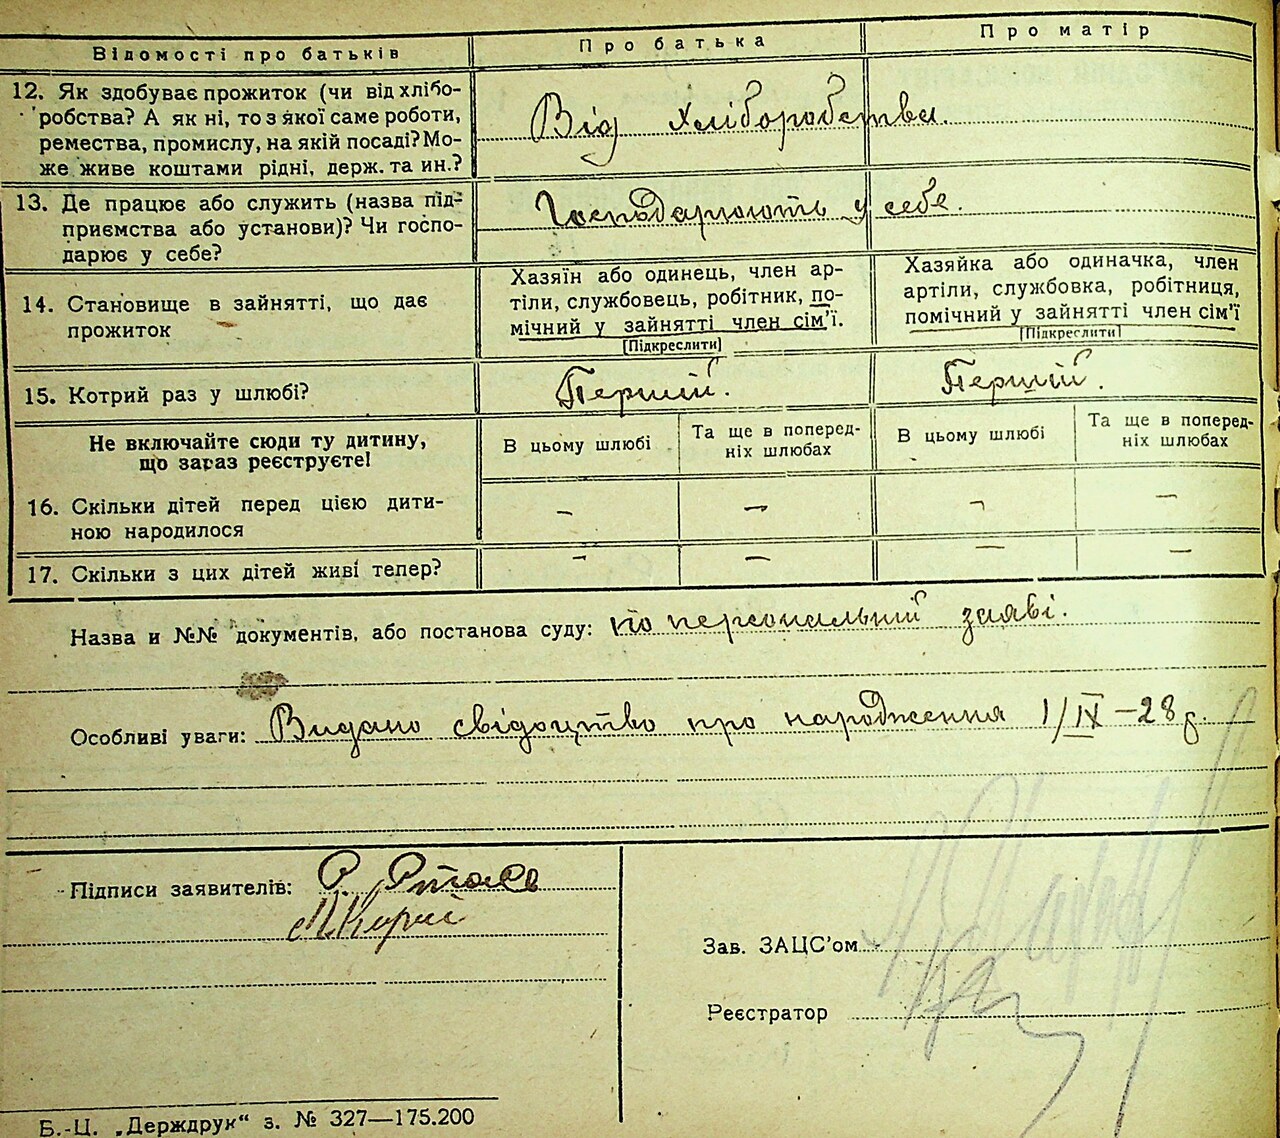 Відомості про батьків
Про батька
Про матір
12. Як здобуває прожиток (чи від хлібо-
робства? А як ні, то з якої саме роботи,
ремества, промислу, на якій посаді? Мо-
же живе коштами рідні, держ. та ин.?
Від хліборобства.
13. Де працює або служить (назва під-
приємства або установи)? Чи госпо-
дарює у себе?
Господарюють у себе.
14. Становище в зайнятті, що дає
прожиток
Хазяїн або одинець, член ар-
тілі, службовець, робітник, по-
мічний у зайнятті член сім'ї.
[Підкреслити]
Хазяйка або одиначка, член
артілі, службовка, робітниця,
помічний у зайнятті член сім'ї
[Підкреслити]
15. Котрий раз у шлюбі?
Перший.
Перший.
Не включайте сюди ту дитину,
що зараз реєструєте!
В цьому шлюбі
Та ще в поперед-
ніх шлюбах
В цьому шлюбі
Та ще в поперед-
ніх шлюбах
16. Скільки дітей перед цією дити-
ною народилося
— — — —
17. Скільки з цих дітей живі тепер?
— — — —
Назва и №№ документів, або постанова суду: по персональній заяві.
Особливі уваги: Видано свідоцтво про народження 1/IX—28 р.
Підписи заявителів:
Зав. ЗАЦС'ом
Реєстратор
Б.-Ц. „Держдрук“ з. № 327—175.200